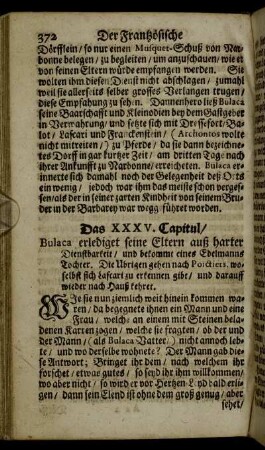 372 Der Frantzösische
Dörfflein / so nur einen Musquet-Schuß von Nar-
bonne belegen / zu begleiten / um anzuschauen / wie er
von seinen Eltern würde empfangen werden. Sie
wolten ihm diesen Dienst nicht abschlagen / zumahl
weil sie allerseits selber grosses Verlangen trugen /
diese Empfahung zu sehen. Dannenhero ließ Bulaca
seine Baarschafft und Kleinodien bey dem Gastgeber
in Verwahrung / und setzte sich mit Dressefort / Ba-
lot / Lascari und Franckenstein / (Archontos wolte
nicht mitreiten /) zu Pferde / da sie dann bezeichne-
tes Dorff in gar kurtzer Zeit / am dritten Tage nach
ihrer Ankunfft zu Narbonne / erreicheten. Bulaca er-
innerte sich damahl noch der Gelegenheit deß Orts
ein wenig / jedoch war ihm das meiste schon vergeß-
sen / als der in seiner zarten Kindheit von seinem Bru-
der in der Barbarey war wegg führet worden.
Das XXXV. Capitul /
Bulaca erlediget seine Eltern auß harter
Dienstbarkeit / und bekommt eines Edelmanns
Tochter. Die Ubrigen gehen nach Poictiers, wo-
selbst sich Lascari zu erkennen gibt / und darauff
wieder nach Hauß kehret.
WJe sie nun ziemlich weit hinein kommen wa-
ren / da begegnete ihnen ein Mann und eine
Frau / welche an einem mit Steinen bela-
denen Karren zogen / welche sie fragten / ob der und
der Mann / (als Bulaca Vatter /) nicht annoch leb-
te / und wo derselbe wohnete? Der Mann gab die-
se Antwort; Bringet ihr dem / nach welchem ihr
forschet / etwas gutes / so seyd ihr ihm willkommen /
wo aber nicht / so wird er vor Hertzen-Leyd bald erli-
gen / dann sein Elend ist ohne dem groß genug / aber
sehet /